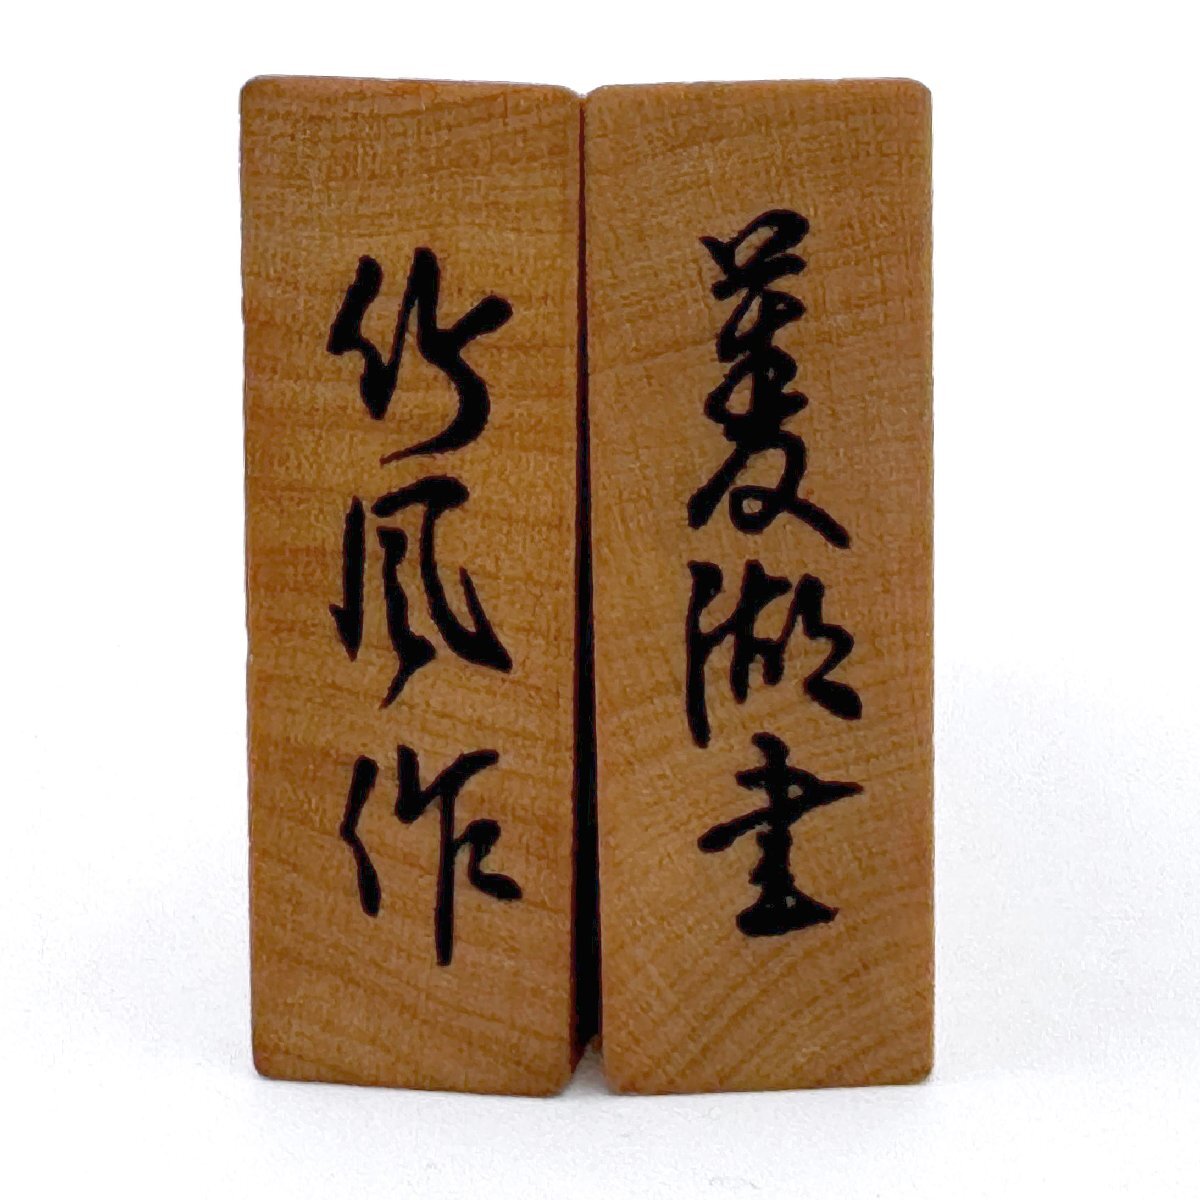 菱湖書
竹風作